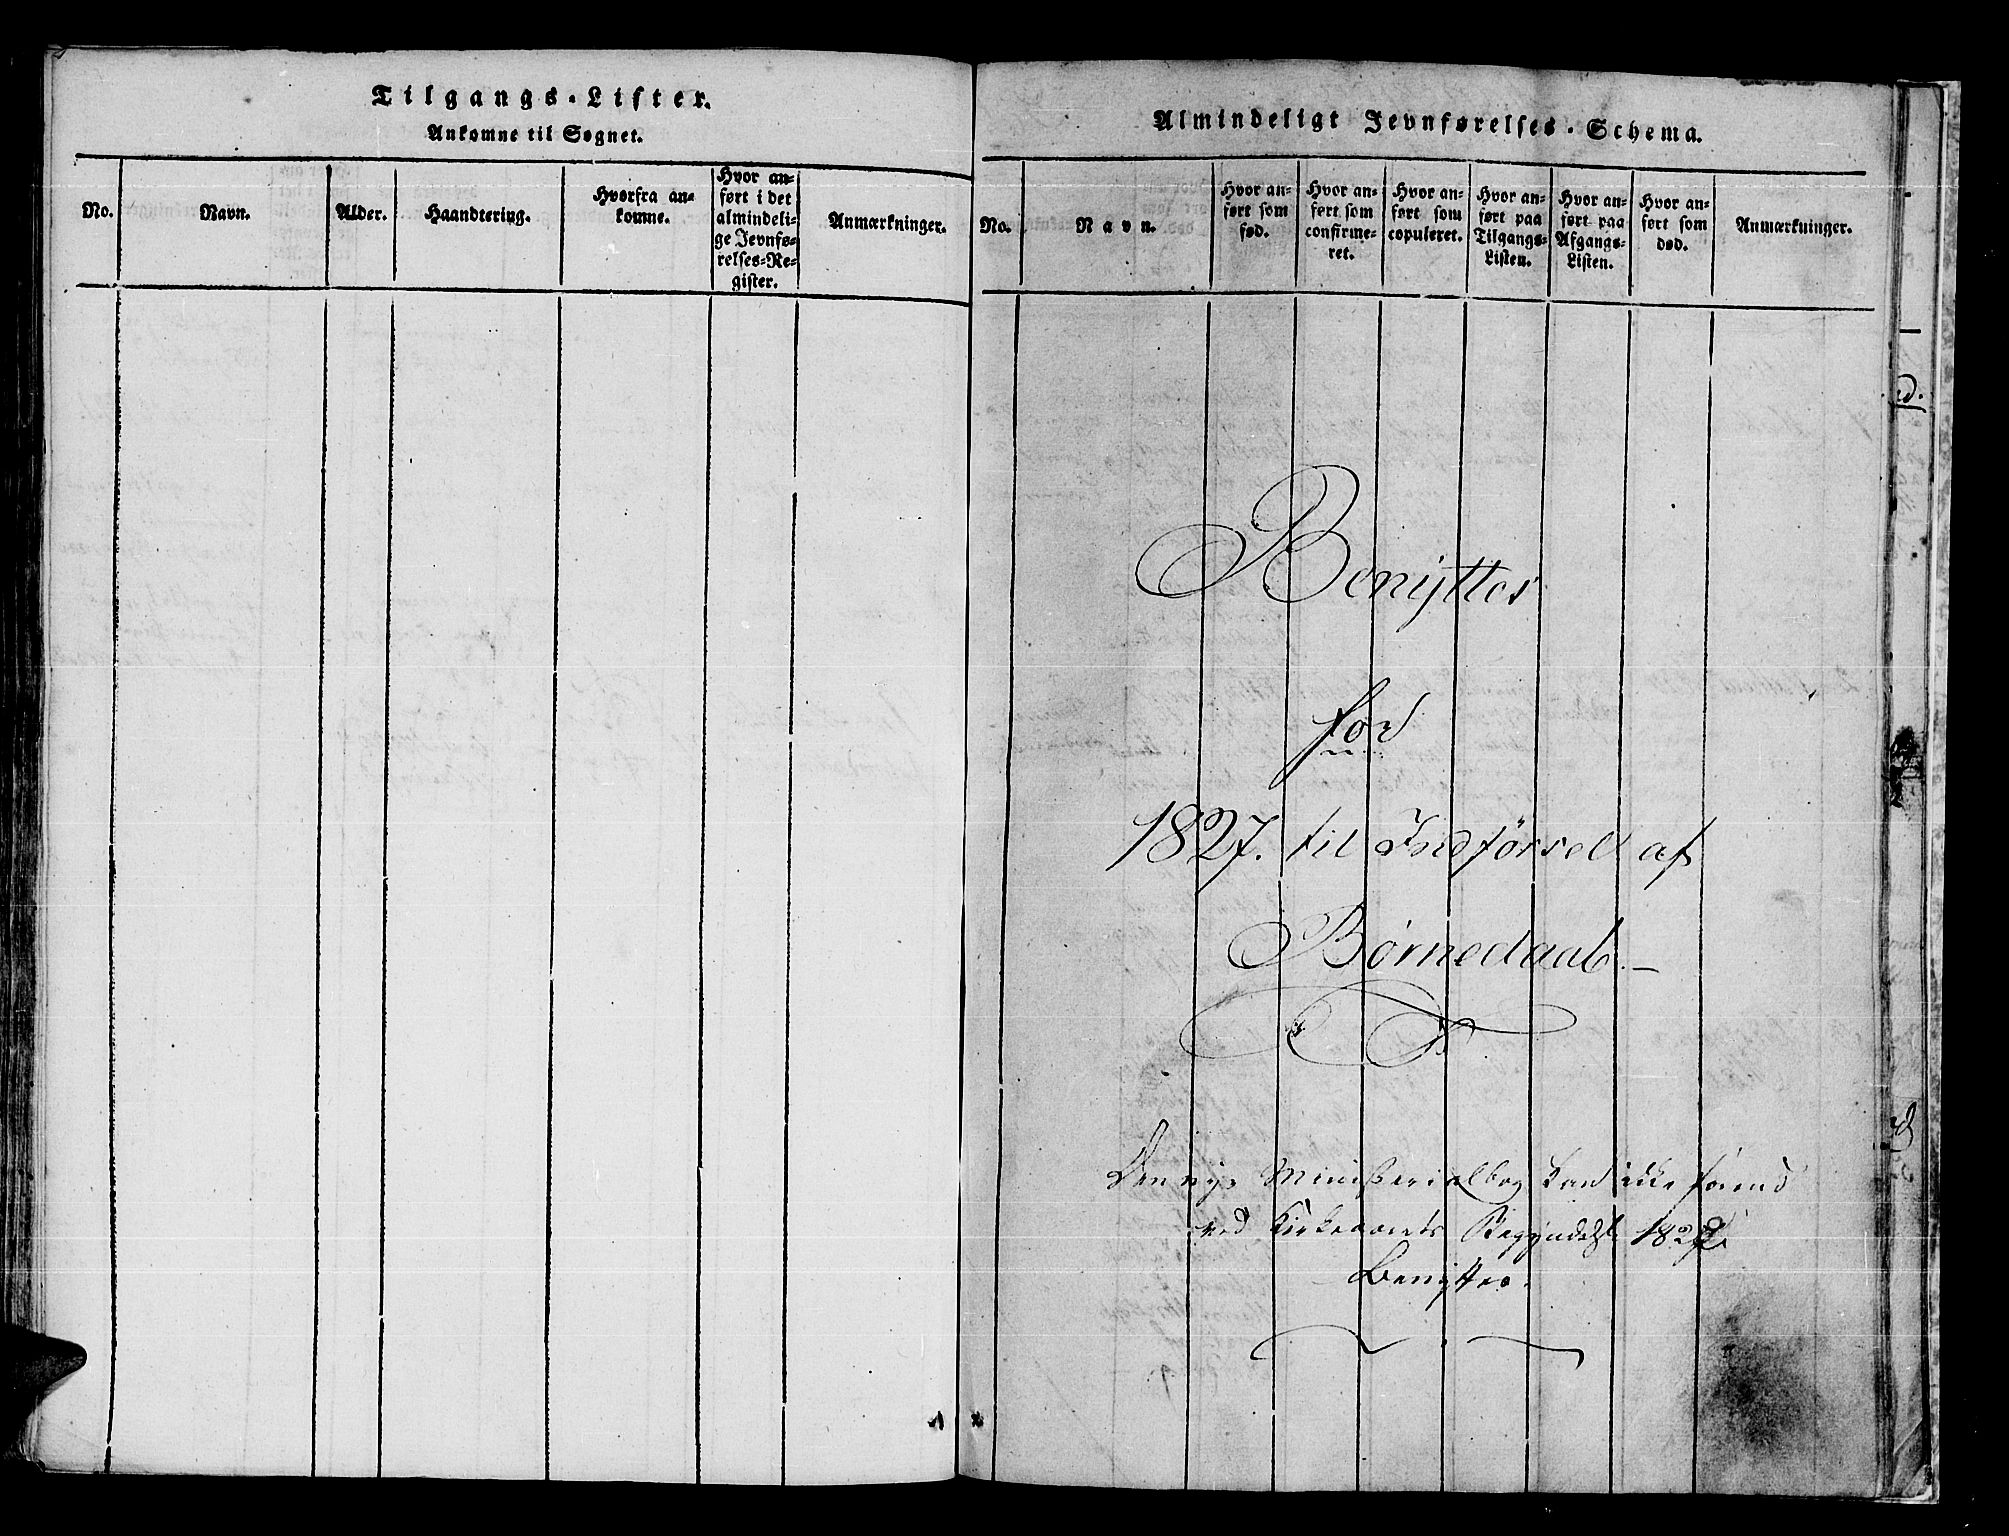 Tilgangs-Lister.
Ankomne til Sognet.
No.
Navn.
Alder.
Haandtering.
Hvorfra an-
komne.
Hvor an-
ført i det
almindeli-
ge Jevnfø-
relses-Re-
gister.
Anmærkninger.
Almindeligt Jevnførelses-Schema.
No.
Navn.
Hvor an-
ført som
fød.
Hvor an-
ført som
confirme-
ret.
Hvor an-
ført som
copuleret.
Hvor an-
ført paa
Tilgangs-
Listen.
Hvor an-
ført paa
Afgangs-
Listen.
Hvor an-
ført som
død.
Anmærkninger.
Benyttes
for
1827. til Indførsel af
Børnedaab.-
Den nye Ministerialbog kan ikke førend
ved Kirkeaarets Begyndelse
Benyttes.